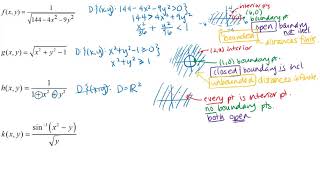 f(x, y) = 1 / √(144 − 4x² − 9y²)
D: {(x,y): 144-4x²-9y²>0}
144 > 4x²+9y²
x²/36 + y²/16 < 1
interior pt.
(6,0)
boundary pt.
open boundary not incl
bounded distances finite
g(x, y) = √(x² + y² − 1)
D: {(x,y): x²+y²-1≥0}
x²+y²≥1
interior
(1,0) boundary pt.
closed boundary is incl
unbounded distances infinite.
h(x, y) = 1 / (1 + x² + y²)
D: {(x,y): D=ℝ²
every pt is interior pt.
no boundary pts.
both open
k(x, y) = sin⁻¹(x² − y) / √y